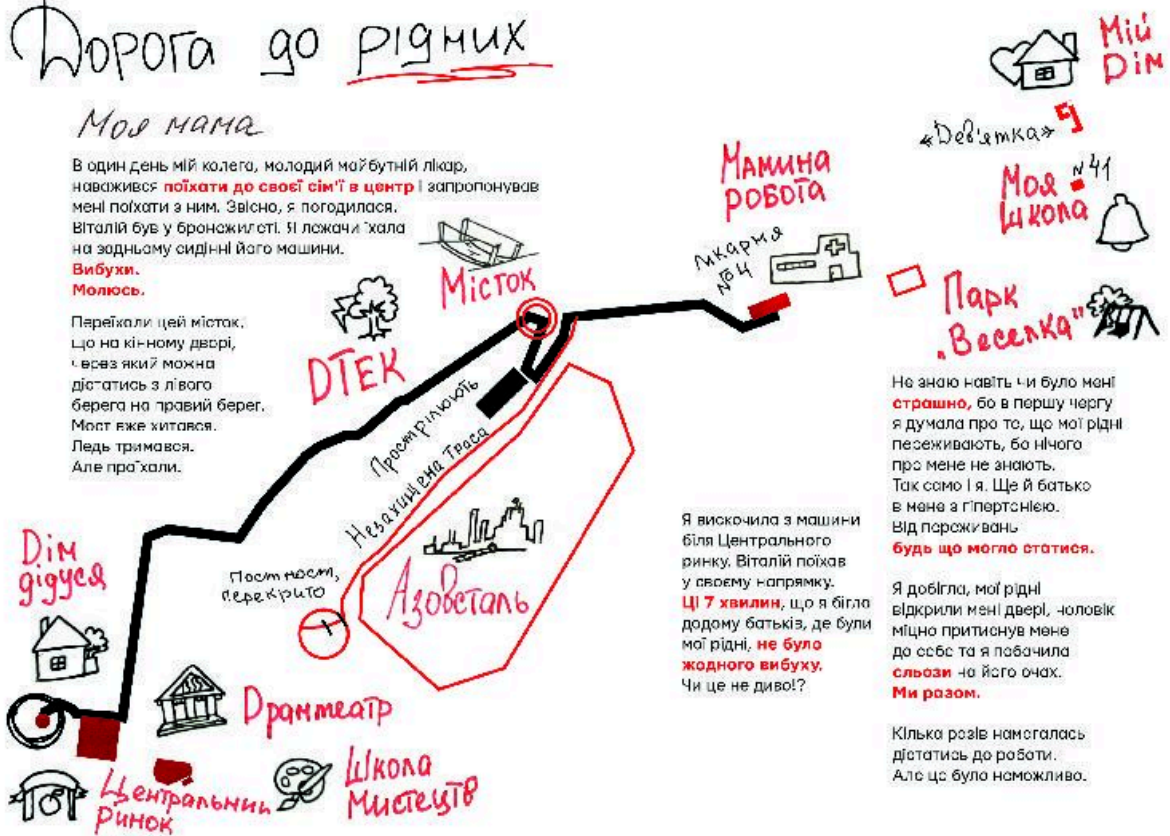 Дорога до рідних
Моя мама
В один день мій колега, молодий майбутній лікар,
наважився поїхати до своєї сім'ї в центр і запропонував
мені поїхати з ним. Звісно, я погодилася.
Віталій був у бронежилеті. Я лежачи їхала
на задньому сидінні його машини.
Вибухи.
Молюсь.
Переїхали цей місток,
що на кінному дворі,
через який можна
дістатись з лівого
берега на правий берег.
Мост вже хитався.
Ледь тримався.
Але проїхали.
Місток
ДТЕК
Мамина
робота
Лікарня
№4
Мій
Дім
«Дев'ятка»
Моя
Школа
№41
Парк
„Веселка"
Прострілюють
Незахищена траса
Азовсталь
Пост
перекрито
Дім
дідуся
Драмтеатр
Центральний
Ринок
Школа
Мистецтв
Я вискочила з машини
біля Центрального
ринку. Віталій поїхав
у своєму напрямку.
Ці 7 хвилин, що я бігла
додому батьків, де були
мої рідні, не було
жодного вибуху.
Чи це не диво!?
Не знаю навіть чи було мені
страшно, бо в першу чергу
я думала про те, що мої рідні
переживають, бо нічого
про мене не знають.
Так само і я. Ще й батько
в мене з гіпертонією.
Від переживань
будь що могло статися.
Я добігла, мої рідні
відкрили мені двері, чоловік
міцно притиснув мене
до себе та я побачила
сльози на його очах.
Ми разом.
Кілька разів намагалась
дістатись до роботи.
Але це було неможливо.